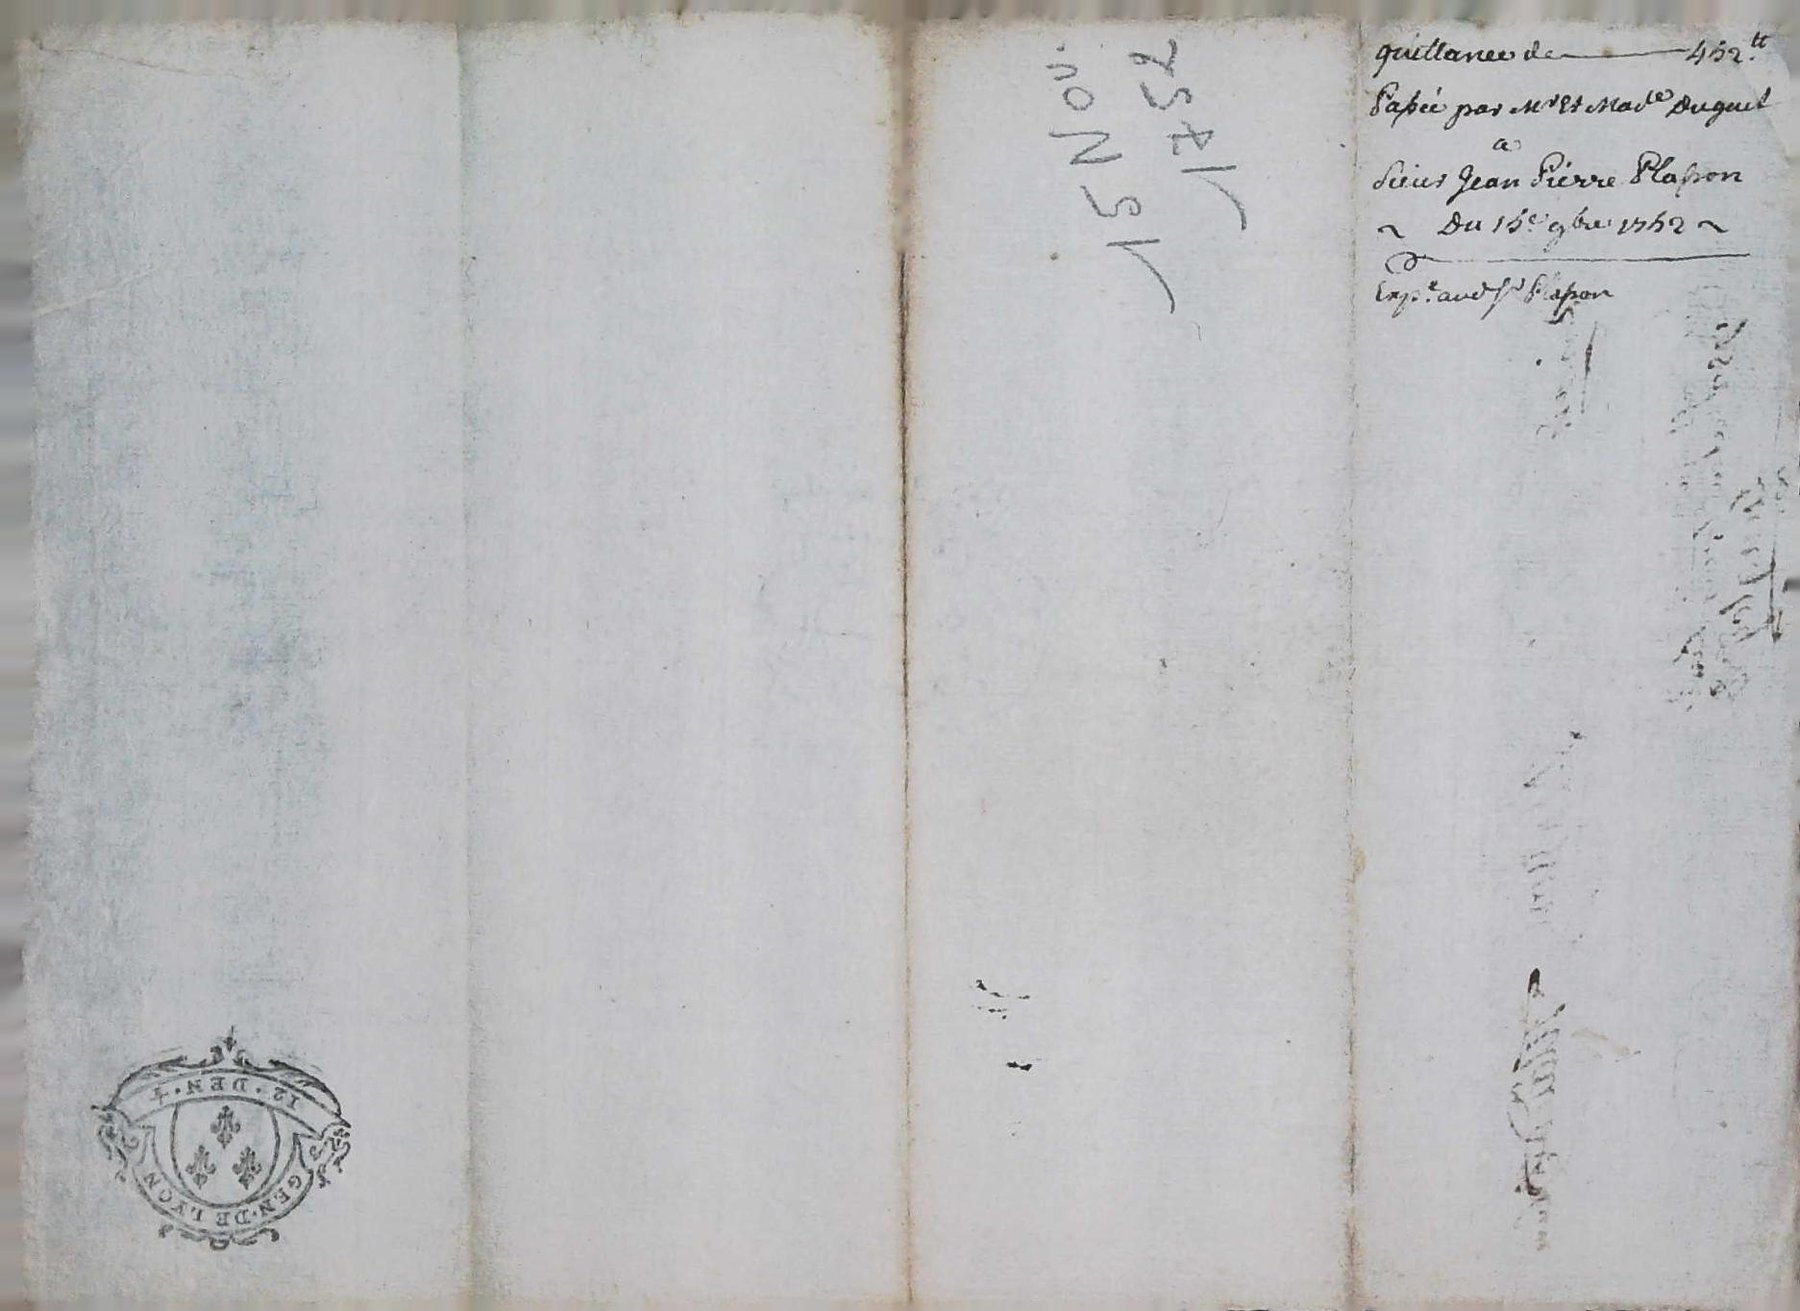 quittance de 452.tt
Passée par Mr Et Made Duguet
a
Sieur Jean Pierre Plasson
~ Du 15e 9bre 1752 ~
Expe. aud Sr Plasson
15 Nov.
1752
12. DEN. 4
GEN. DE LYON